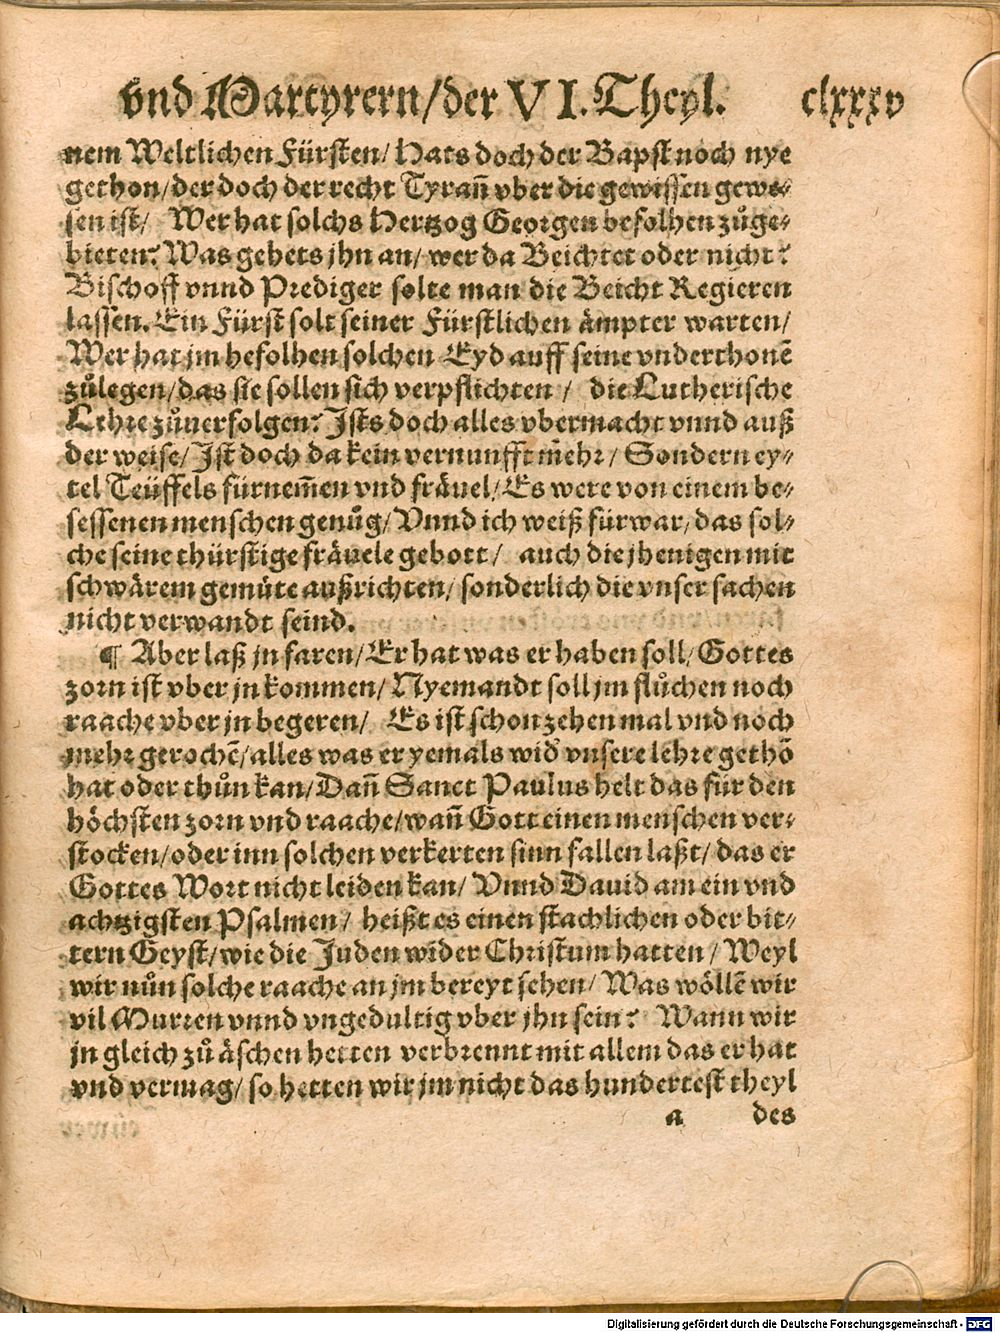 vnd Martyrern/der VI. Theyl. clxxxv
nem Weltlichen Fürsten/ Hats doch der Bapst noch nye
gethon/der doch der recht Tyrañ vber die gewissen gewe⸗
sen ist/ Wer hat solchs Hertzog Georgen befolhen zůge⸗
bieten? Was gehets jhn an/ wer da Beichtet oder nicht?
Bischoff vnnd Prediger solte man die Beicht Regieren
lassen. Ein Fürst solt seiner Fürstlichen ämpter warten/
Wer hat jm befolhen solchen Eyd auff seine vnderthonē
zůlegen/das sie sollen sich verpflichten / die Lutherische
Lehre zůuerfolgen? Ists doch alles vbermacht vnnd auß
der weise/ Ist doch da kein vernunfft m̃ehr/ Sondern ey⸗
tel Teüffels fürnem̃en vnd fräuel/ Es were von einem be⸗
sessenen menschen genůg/ Vnnd ich weiß fürwar/ das sol⸗
che seine thürstige fräuele gebott/ auch die jhenigen mit
schwärem gemüte außrichten/ sonderlich die vnser sachen
nicht verwandt seind.
¶ Aber laß jn faren/ Er hat was er haben soll/ Gottes
zorn ist vber jn kommen/ Nyemandt soll jm flůchen noch
raache vber jn begeren/ Es ist schon zehen mal vnd noch
mehr gerochē/alles was er yemals wid’ vnsere lehre gethō
hat oder thůn kan/ Dañ Sanct Paulus helt das für den
höchsten zorn vnd raache/wañ Gott einen menschen ver⸗
stocken/oder inn solchen verkerten sinn fallen laßt/ das er
Gottes Wort nicht leiden kan/ Vnnd Dauid am ein vnd
achtzigsten Psalmen/ heißt es einen stachlichen oder bit⸗
tern Geyst/wie die Juden wider Christum hatten/ Weyl
wir nůn solche raache an jm bereyt sehen/ Was wöllē wir
vil Murren vnnd vngedultig vber jhn sein? Wann wir
jn gleich zů äschen hetten verbrennt mit allem das er hat
vnd vermag/ so hetten wir jm nicht das hundertest theyl
a des
Digitalisierung gefördert durch die Deutsche Forschungsgemeinschaft - DFG